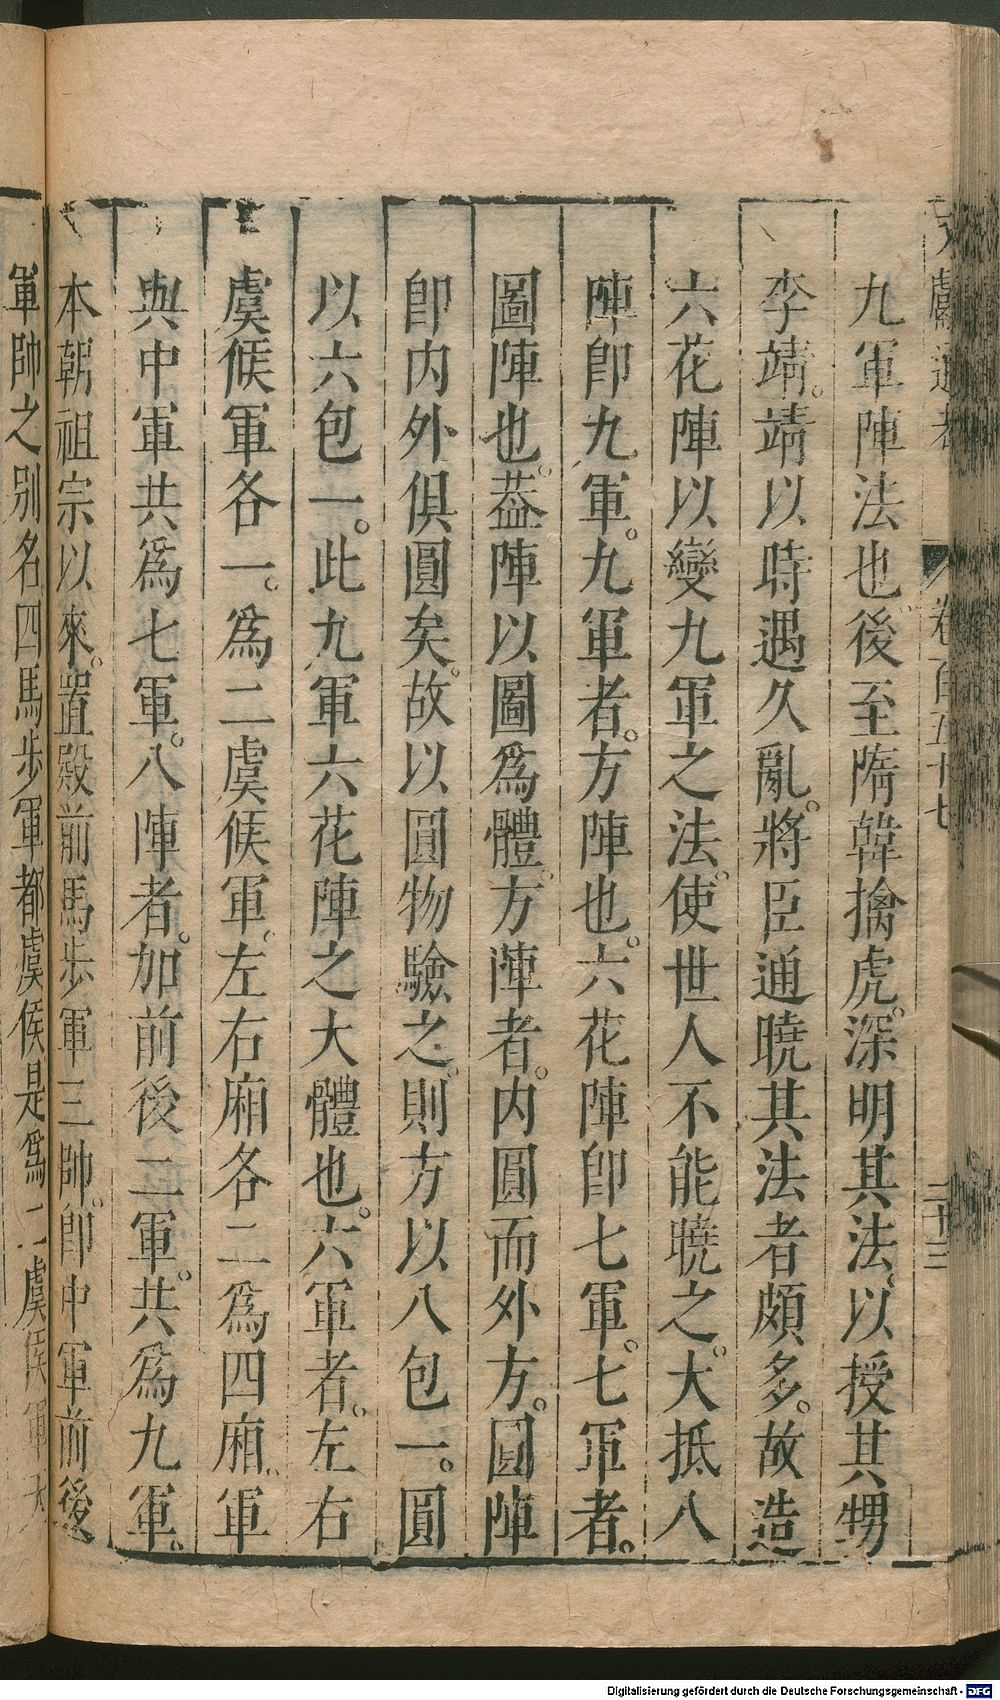 文獻通考 卷百五十七 二十三
九軍陣法也後至隋韓擒虎。深明其法。以授其甥
李靖。靖以時遇久亂。將臣通曉其法者頗多。故造
六花陣以變九軍之法。使世人不能曉之。大抵八
陣卽九軍。九軍者。方陣也。六花陣卽七軍。七軍者。
圓陣也。葢陣以圓爲體。方陣者。內圓而外方。圓陣
卽內外俱圓矣。故以圓物驗之。則方以八包一。圓
以六包一。此九軍六花陣之大體也。六軍者。左右
虞候軍各一。爲二虞候軍。左右廂各二爲四廂。軍
與中軍共爲七軍。八陣者。加前後二軍。共爲九軍。
本朝祖宗以來。置殿前馬步軍三帥。卽中軍前後
軍帥之別名四馬步軍都虞候是爲二虞候軍
Digitalisierung gefördert durch die Deutsche Forschungsgemeinschaft - DFG